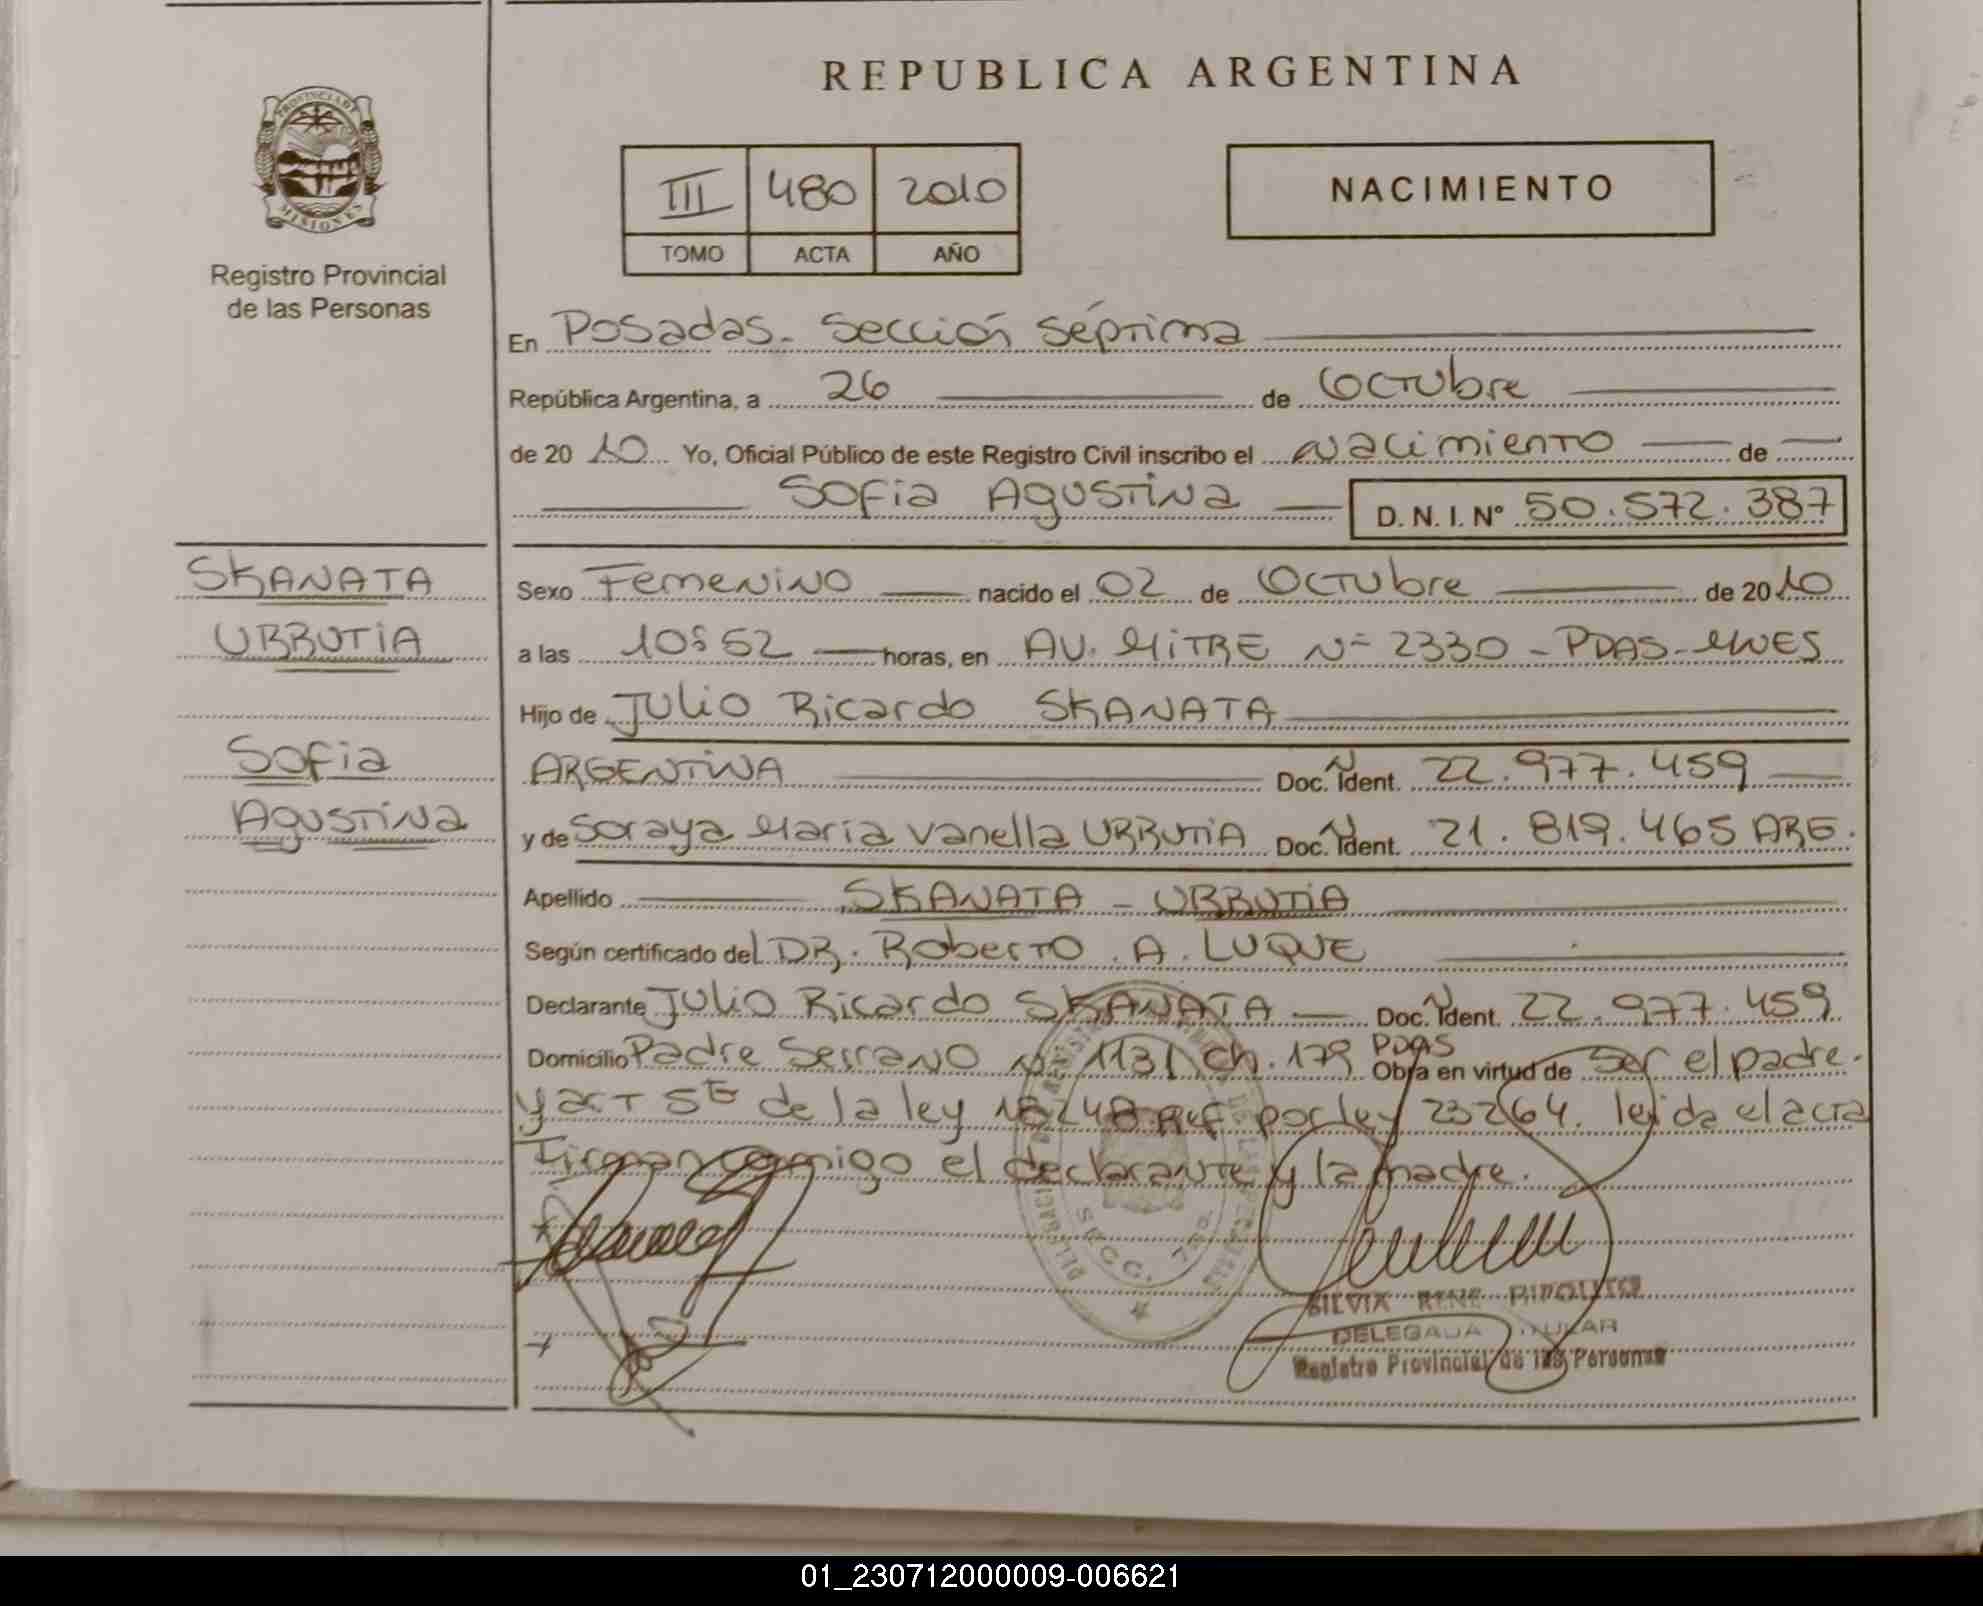 REPUBLICA ARGENTINA
PROVINCIA DE
MISIONES
Registro Provincial
de las Personas
III 480 2010
TOMO ACTA AÑO
NACIMIENTO
En Posadas - Sección Séptima
República Argentina, a 26 de Octubre
de 20 10 Yo, Oficial Público de este Registro Civil inscribo el Nacimiento de
Sofia Agustina D. N. I. Nº 50.572.387
SKANATA
URRUTIA
Sofia
Agustina
Sexo Femenino nacido el 02 de Octubre de 20 10
a las 10:52 horas, en AV. MITRE Nº 2330 - PDAS - MNES
Hijo de Julio Ricardo SKANATA
ARGENTINA Doc. Ident. 22.977.459
y de Soraya Maria Vanella URRUTIA Doc. Ident. 21.819.465 ARG.
Apellido SKANATA - URRUTIA
Según certificado del DR. Roberto A. LUQUE
Declarante Julio Ricardo SKANATA Doc. Ident. 22.977.459
Domicilio Padre Serrano Nº 1131 ch. 179 PDAS Obra en virtud de ser el padre.
y art 5º de la ley 18248 Ref por ley 23264. leida el acta
Firman conmigo el declarante y la madre.
SILVIA RENE RIPOLL
DELEGADA TITULAR
Registro Provincial de las Personas
01_230712000009-006621